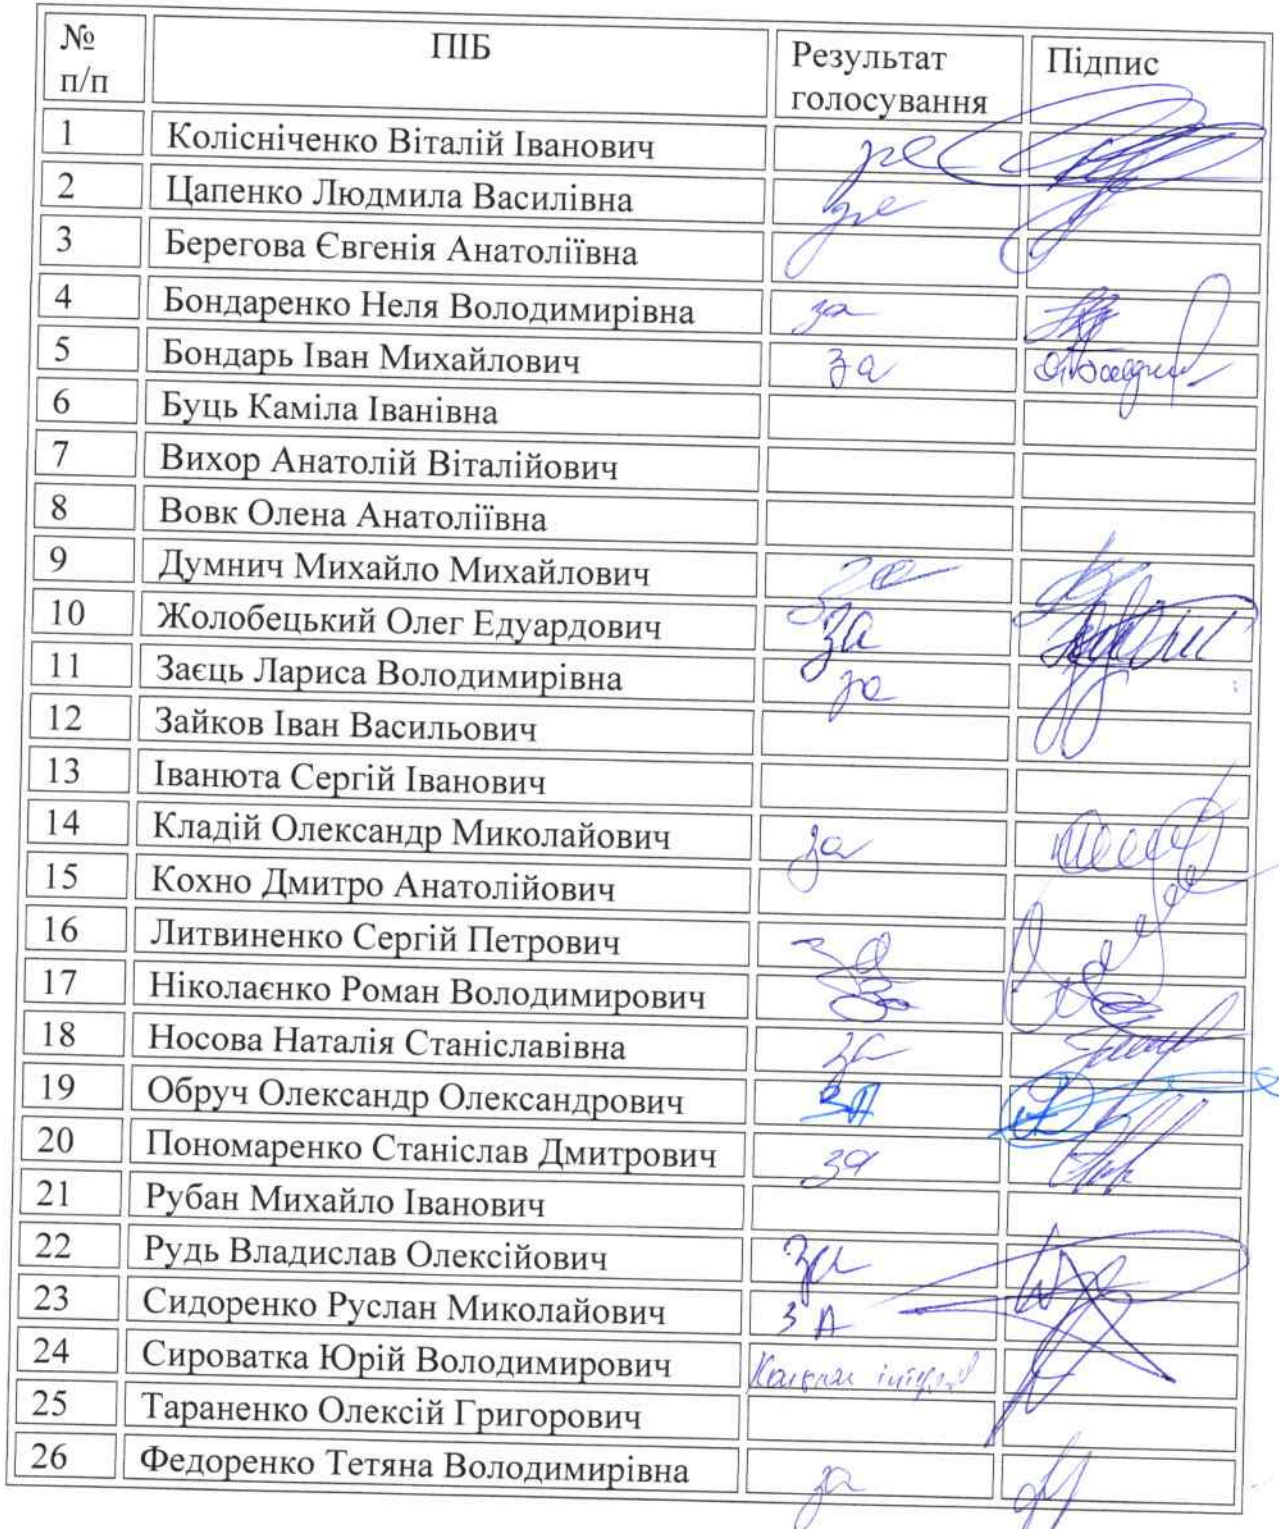 № п/п ПІБ Результат голосування Підпис
1 Колісніченко Віталій Іванович за
2 Цапенко Людмила Василівна за
3 Берегова Євгенія Анатоліївна
4 Бондаренко Неля Володимирівна за
5 Бондарь Іван Михайлович за
6 Буць Каміла Іванівна
7 Вихор Анатолій Віталійович
8 Вовк Олена Анатоліївна
9 Думнич Михайло Михайлович за
10 Жолобецький Олег Едуардович за
11 Заєць Лариса Володимирівна за
12 Зайков Іван Васильович
13 Іванюта Сергій Іванович
14 Кладій Олександр Миколайович за
15 Кохно Дмитро Анатолійович
16 Литвиненко Сергій Петрович за
17 Ніколаєнко Роман Володимирович за
18 Носова Наталія Станіславівна за
19 Обруч Олександр Олександрович ЗА
20 Пономаренко Станіслав Дмитрович за
21 Рубан Михайло Іванович
22 Рудь Владислав Олексійович за
23 Сидоренко Руслан Миколайович ЗА
24 Сироватка Юрій Володимирович
25 Тараненко Олексій Григорович
26 Федоренко Тетяна Володимирівна за